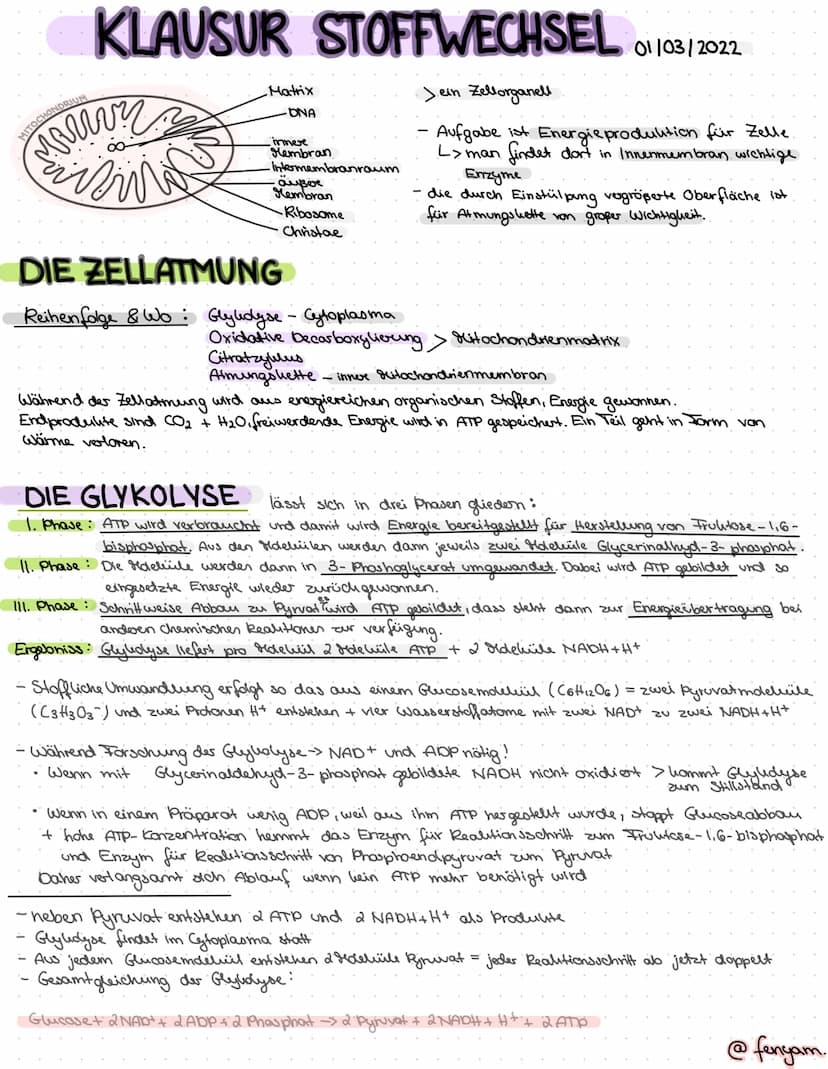 KLAUSUR STOFFWECHSEL 01/03/2022
MITOCHONDRIUM
Matrix
DNA
innere
Membran
Intermembranraum
äußere
Membran
Ribosome
Christae
> ein Zellorganell
- Aufgabe ist Energieproduktion für Zelle
↳ man findet dort in Innenmembran wichtige
Enzyme
- die durch Einstülpung vegrößerte Oberfläche ist
für Atmungskette von großer Wichtigkeit.
DIE ZELLATMUNG
Reihenfolge & Wo : Glykolyse - Cytoplasma
Oxidative Decarboxylierung > Mitochondrienmatrix
Citratzyklus
Atmungskette - innere Mitochondrienmembran
Während der Zellatmung wird aus energiereichen organischen Stoffen, Energie gewonnen.
Endprodukte sind CO₂ + H₂O, freiwerdende Energie wird in ATP gespeichert. Ein Teil geht in Form von
Wärme verloren.
DIE GLYKOLYSE lässt sich in drei Phasen gliedern :
I. Phase : ATP wird verbraucht und damit wird Energie bereitgestellt für Herstellung von Fruktose-1,6-
bisphosphat. Aus den Molekülen werden dann jeweils zwei Moleküle Glycerinalhyd-3-phosphat.
II. Phase : Die Moleküle werden dann in 3-Phoshoglycerat umgewandet. Dabei wird ATP gebildet und so
eingesetzte Energie wieder zurückgewonnen.
III. Phase : Schrittweise Abbau zu Pyrvat wird ATP gebildet, dass steht dann zur Energieübertragung bei
anderen chemischen Reaktionen zur verfügung.
Ergebniss : Glykolyse liefert pro Molekül 2 Moleküle ATP + 2 Moleküle NADH+H⁺
- Stoffliche Umwandlung erfolgt so das aus einem Glucosemolekül (C₆H₁₂O₆) = zwei Pyruvatmoleküle
(C₃H₃O₃⁻) und zwei Protonen H⁺ entstehen + vier Wasserstoffatome mit zwei NAD⁺ zu zwei NADH+H⁺
- Während Forschung der Glykolyse -> NAD⁺ und ADP nötig!
• Wenn mit Glycerinaldehyd-3-phosphat gebildete NADH nicht oxidiert > kommt Glykolyse
zum Stillstand
• Wenn in einem Präparat wenig ADP, weil aus ihm ATP hergestellt wurde, stoppt Glucoseabbau
+ hohe ATP-Konzentration hemmt das Enzym für Reaktionsschritt zum Fruktose-1,6-bisphosphat
und Enzym für Reaktionsschritt von Phosphoenolpyruvat zum Pyruvat
Daher verlangsamt sich Ablauf wenn kein ATP mehr benötigt wird
- neben Pyruvat entstehen 2 ATP und 2 NADH+H⁺ als Produkte
- Glykolyse findet im Cytoplasma statt
- Aus jedem Glucosemolekül entstehen 2 Moleküle Pyruvat = jeder Reaktionsschritt ab jetzt doppelt
- Gesamtgleichung der Glykolyse :
Glucose + 2 NAD⁺ + 2 ADP + 2 Phosphat -> 2 Pyruvat + 2 NADH + H⁺ + 2 ATP
@fenyam.